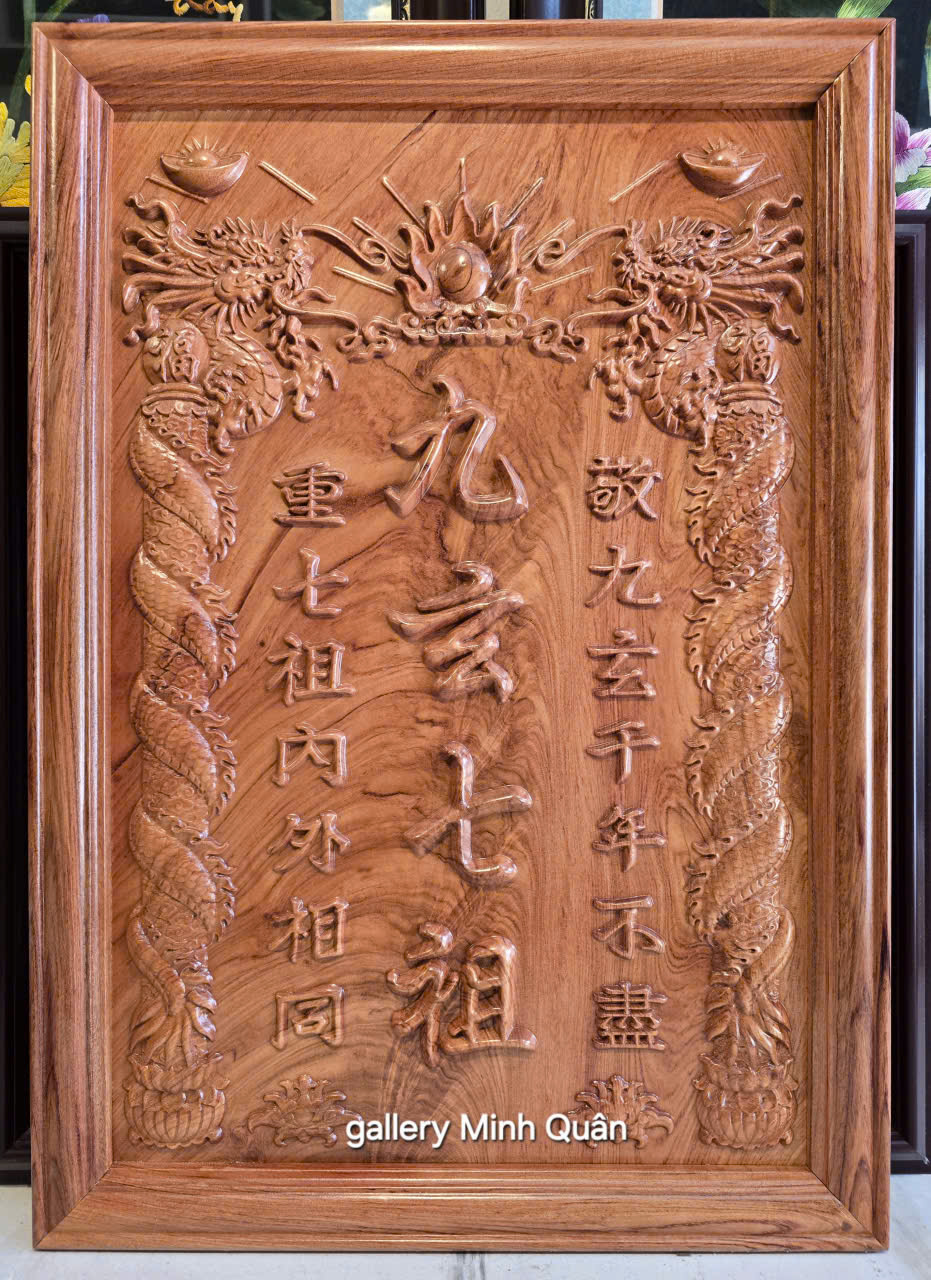 福
福
敬九玄千年不盡
九玄七祖
重七祖內外相同
gallery Minh Quân